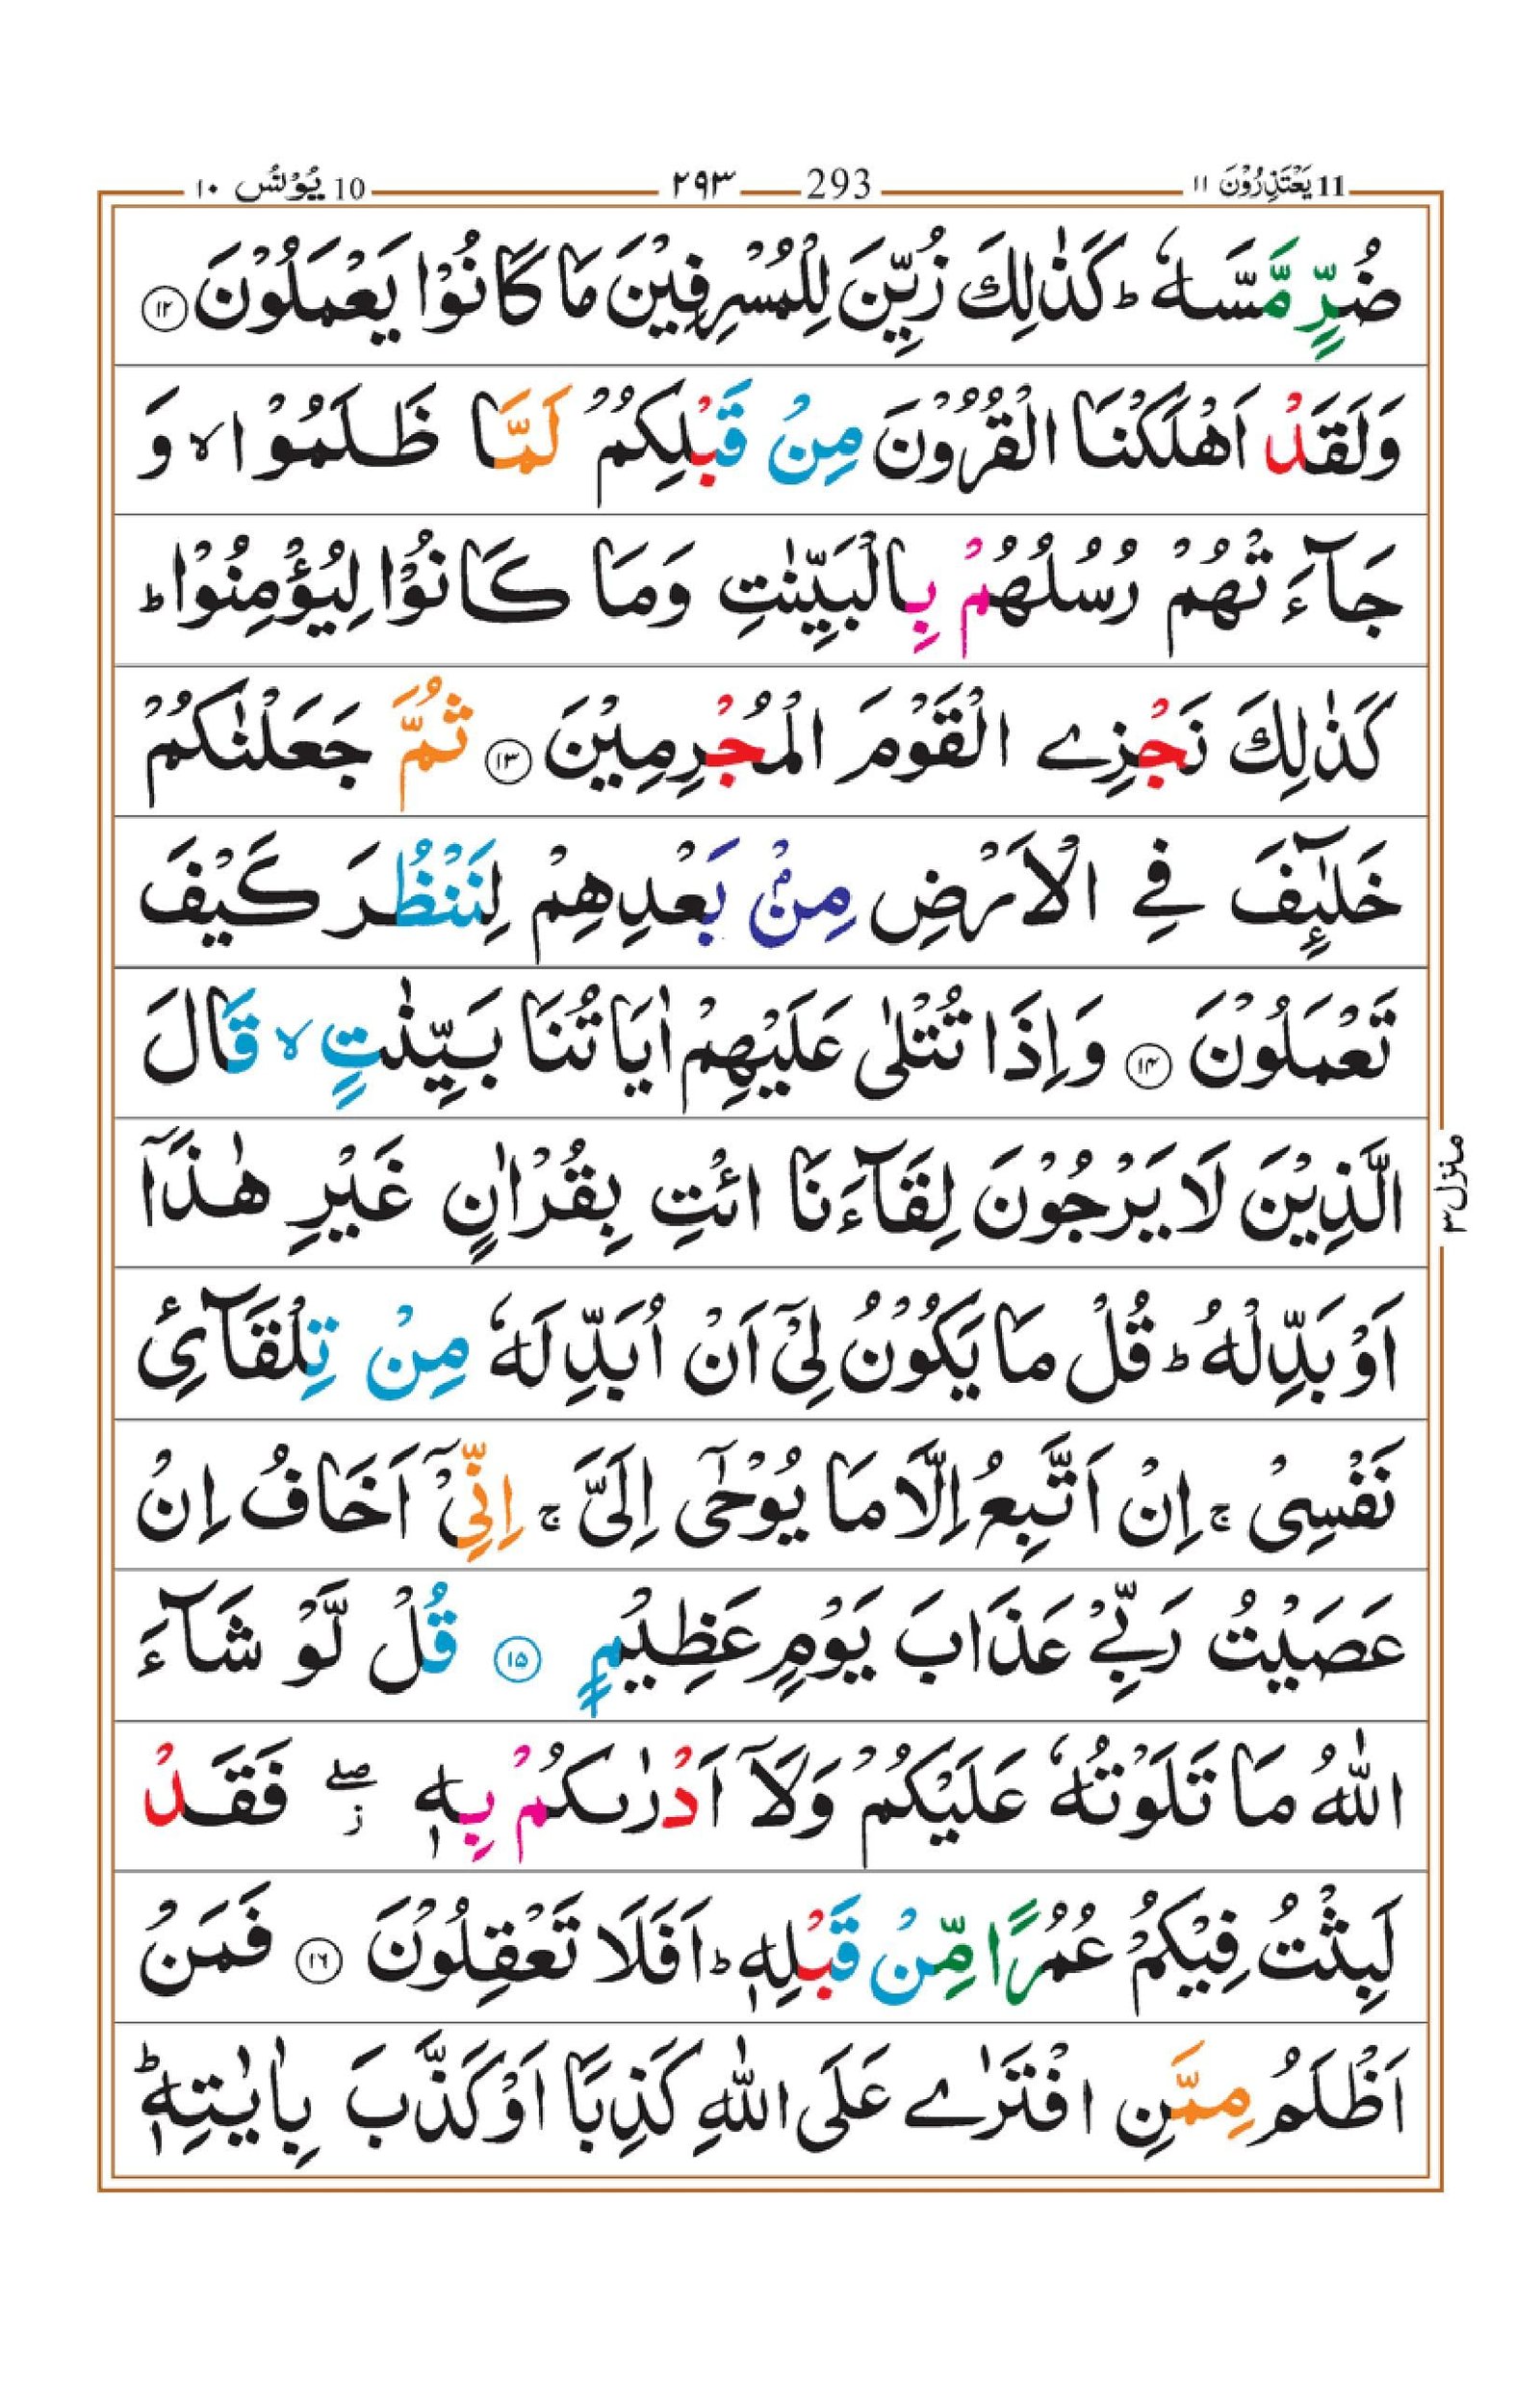 11 یَعْتَذِرُوْنَ ۱۱ 293 ۲۹۳ 10 یُوْنُس ۱۰
ضُرٍّ مَّسَّهٗ ؕ كَذٰلِكَ زُیِّنَ لِلْمُسْرِفِیْنَ مَا كَانُوْا یَعْمَلُوْنَ ﴿۱۲﴾
وَلَقَدْ اَهْلَكْنَا الْقُرُوْنَ مِنْ قَبْلِكُمْ لَمَّا ظَلَمُوْا ۙ وَ
جَآءَتْهُمْ رُسُلُهُمْ بِالْبَیِّنٰتِ وَمَا كَانُوْا لِیُؤْمِنُوْا ؕ
كَذٰلِكَ نَجْزِے الْقَوْمَ الْمُجْرِمِیْنَ ﴿۱۳﴾ ثُمَّ جَعَلْنٰكُمْ
خَلٰٓئِفَ فِے الْاَرْضِ مِنْۢ بَعْدِهِمْ لِنَنْظُرَ كَیْفَ
تَعْمَلُوْنَ ﴿۱۴﴾ وَاِذَا تُتْلٰی عَلَیْهِمْ اٰیَاتُنَا بَیِّنٰتٍ ۙ قَالَ
الَّذِیْنَ لَا یَرْجُوْنَ لِقَآءَنَا ائْتِ بِقُرْاٰنٍ غَیْرِ هٰذَآ
منزل ۳
اَوْ بَدِّلْهُ ؕ قُلْ مَا یَكُوْنُ لِیْۤ اَنْ اُبَدِّلَهٗ مِنْ تِلْقَآئِ
نَفْسِیْ ۚ اِنْ اَتَّبِعُ اِلَّا مَا یُوْحٰۤی اِلَیَّ ۚ اِنِّیْۤ اَخَافُ اِنْ
عَصَیْتُ رَبِّیْ عَذَابَ یَوْمٍ عَظِیْمٍ ﴿۱۵﴾ قُلْ لَّوْ شَآءَ
اللّٰهُ مَا تَلَوْتُهٗ عَلَیْكُمْ وَلَاۤ اَدْرٰىكُمْ بِهٖ ۖز فَقَدْ
لَبِثْتُ فِیْكُمْ عُمُرًا مِّنْ قَبْلِهٖ ؕ اَفَلَا تَعْقِلُوْنَ ﴿۱۶﴾ فَمَنْ
اَظْلَمُ مِمَّنِ افْتَرٰے عَلَی اللّٰهِ كَذِبًا اَوْ كَذَّبَ بِاٰیٰتِهٖ ؕ